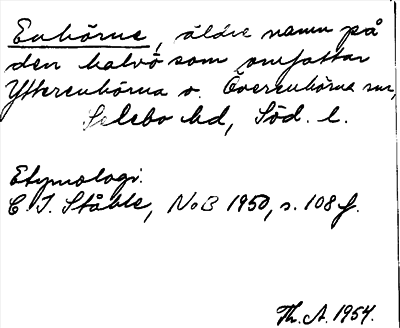 Enhörna, äldre namn på
den halvö som omfattar
Ytterenhörna o. Överenhörna snr,
Selebo hd, Söd. l.
Etymologi.
C. I. Ståhle, NoB 1950, s. 108 f.
Th. A. 1954.